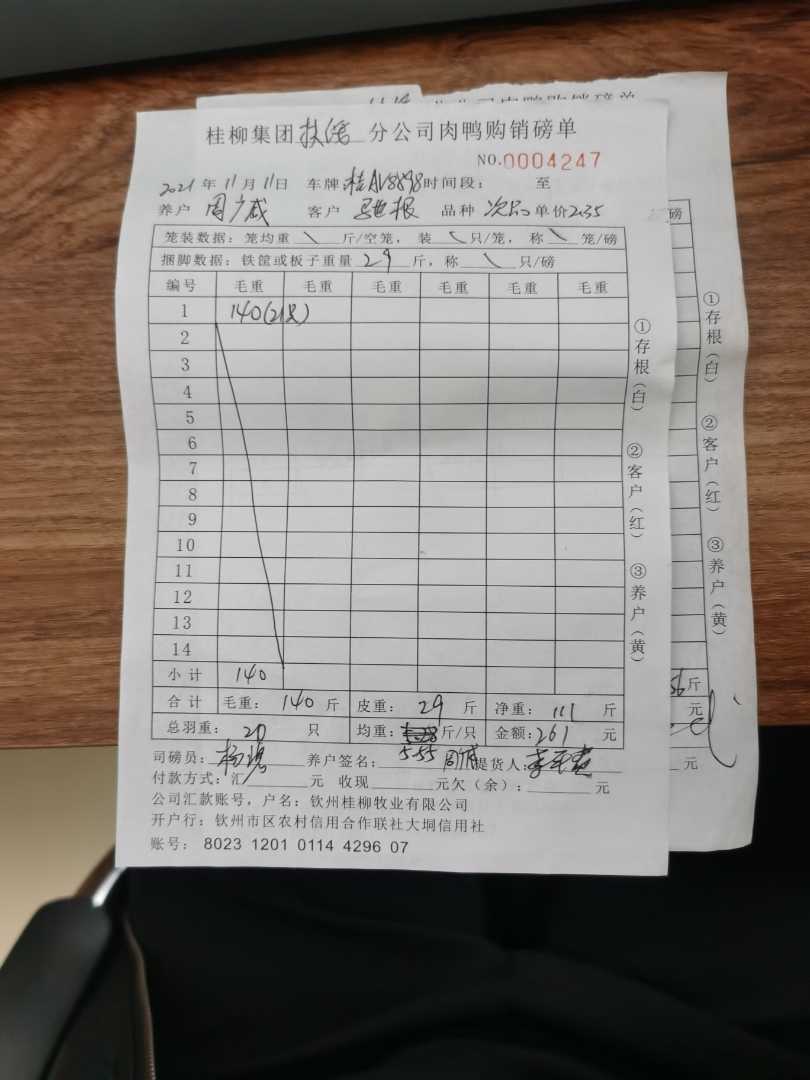 桂柳集团扶绥分公司肉鸭购销磅单
NO.0004247
2021年11月11日 车牌桂AV8898时间段: 至
养户 周广威 客户 马世报 品种 次品 单价2.35
笼装数据: 笼均重 \ 斤/空笼, 装 \ 只/笼, 称 \ 笼/磅
捆脚数据: 铁筐或板子重量 29 斤, 称 \ 只/磅
编号 毛重 毛重 毛重 毛重 毛重 毛重
1 140(21只)
2
3
4
5
6
7
8
9
10
11
12
13
14
小计 140
合计 毛重: 140 斤 皮重: 29 斤 净重: 111 斤
总羽重: 20 只 均重: 斤/只 金额: 261 元
5.55
司磅员: 杨 养户签名: 周 提货人: 李
付款方式: 汇 元 收现 元欠(余): 元
公司汇款账号, 户名: 钦州桂柳牧业有限公司
开户行: 钦州市区农村信用合作联社大垌信用社
账号: 8023 1201 0114 4296 07
①存根(白)
②客户(红)
③养户(黄)
肉鸭购销磅单
磅
①存根(白)
②客户(红)
③养户(黄)
56斤
元
元